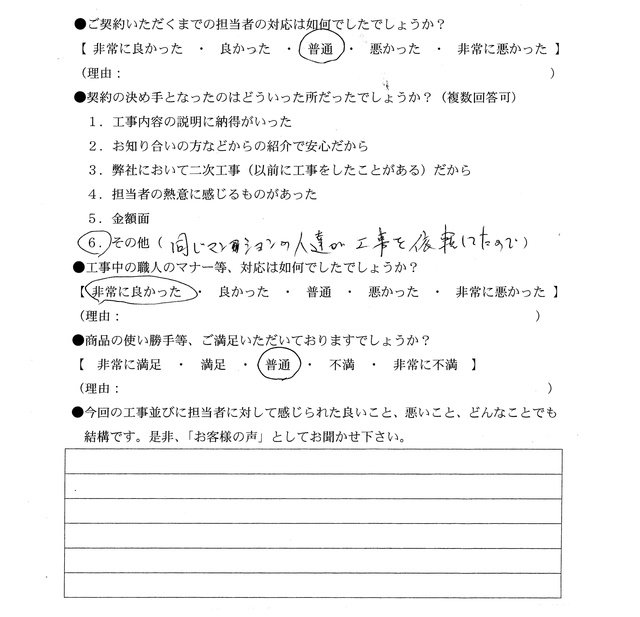 ●ご契約いただくまでの担当者の対応は如何でしたでしょうか？
【 非常に良かった ・ 良かった ・ 普通 ・ 悪かった ・ 非常に悪かった 】
（理由： ）
●契約の決め手となったのはどういった所だったでしょうか？（複数回答可）
１．工事内容の説明に納得がいった
２．お知り合いの方などからの紹介で安心だから
３．弊社において二次工事（以前に工事をしたことがある）だから
４．担当者の熱意に感じるものがあった
５．金額面
６．その他（ 同じマンションの人達が工事を依頼してたので ）
●工事中の職人のマナー等、対応は如何でしたでしょうか？
【 非常に良かった ・ 良かった ・ 普通 ・ 悪かった ・ 非常に悪かった 】
（理由： ）
●商品の使い勝手等、ご満足いただいておりますでしょうか？
【 非常に満足 ・ 満足 ・ 普通 ・ 不満 ・ 非常に不満 】
（理由： ）
●今回の工事並びに担当者に対して感じられた良いこと、悪いこと、どんなことでも
結構です。是非、「お客様の声」としてお聞かせ下さい。